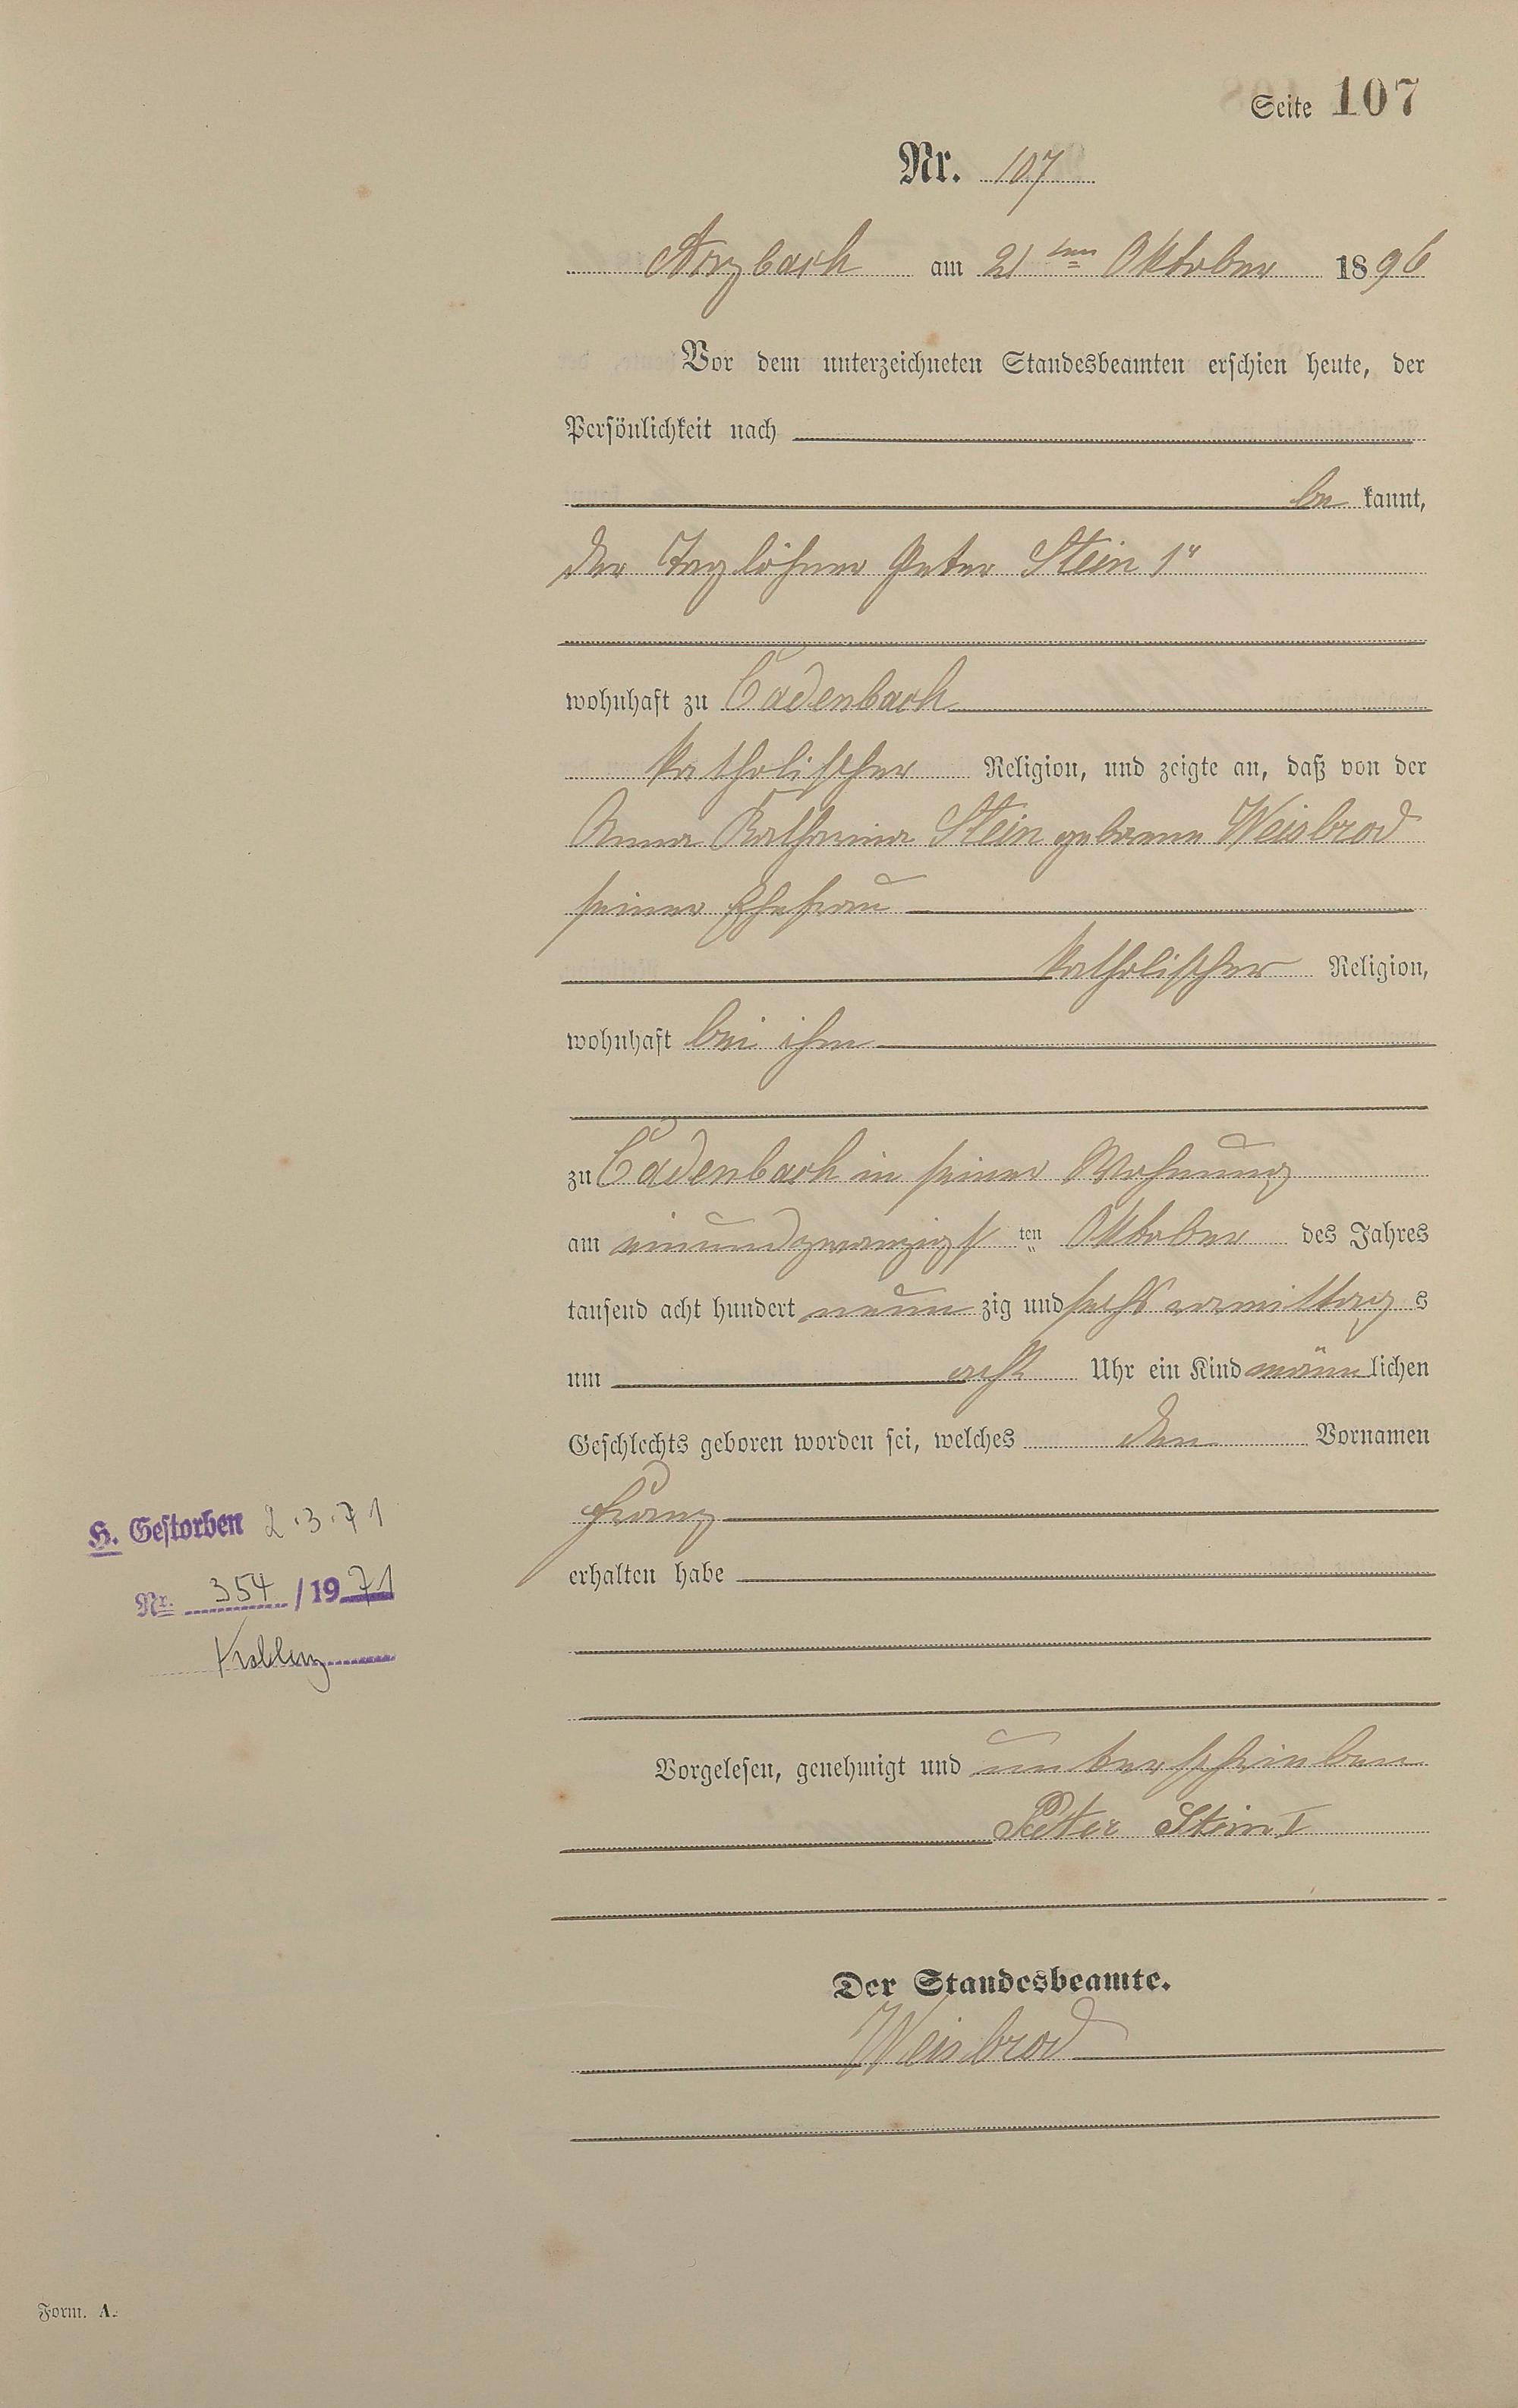 Seite 107
Nr. 107
Arzbach am 21ten Oktober 1896
Vor dem unterzeichneten Standesbeamten erschien heute, der
Persönlichkeit nach
be kannt,
der Taglöhner Peter Stein 1r
wohnhaft zu Cadenbach
katholischer Religion, und zeigte an, daß von der
Anna Katharina Stein geborene Weisbrod
seiner Ehefrau
katholischer Religion,
wohnhaft bei ihm
zu Cadenbach in seiner Wohnung
am einundzwanzigsten Oktober des Jahres
tausend acht hundert neunzig und sechs vormittags
um acht Uhr ein Kind männlichen
Geschlechts geboren worden sei, welches den Vornamen
Franz
erhalten habe
H. Gestorben 2.3.71
Nr. 354/1971
Koblenz
Vorgelesen, genehmigt und unterschrieben
Peter Stein I
Der Standesbeamte.
Weisbrod
Form. A.